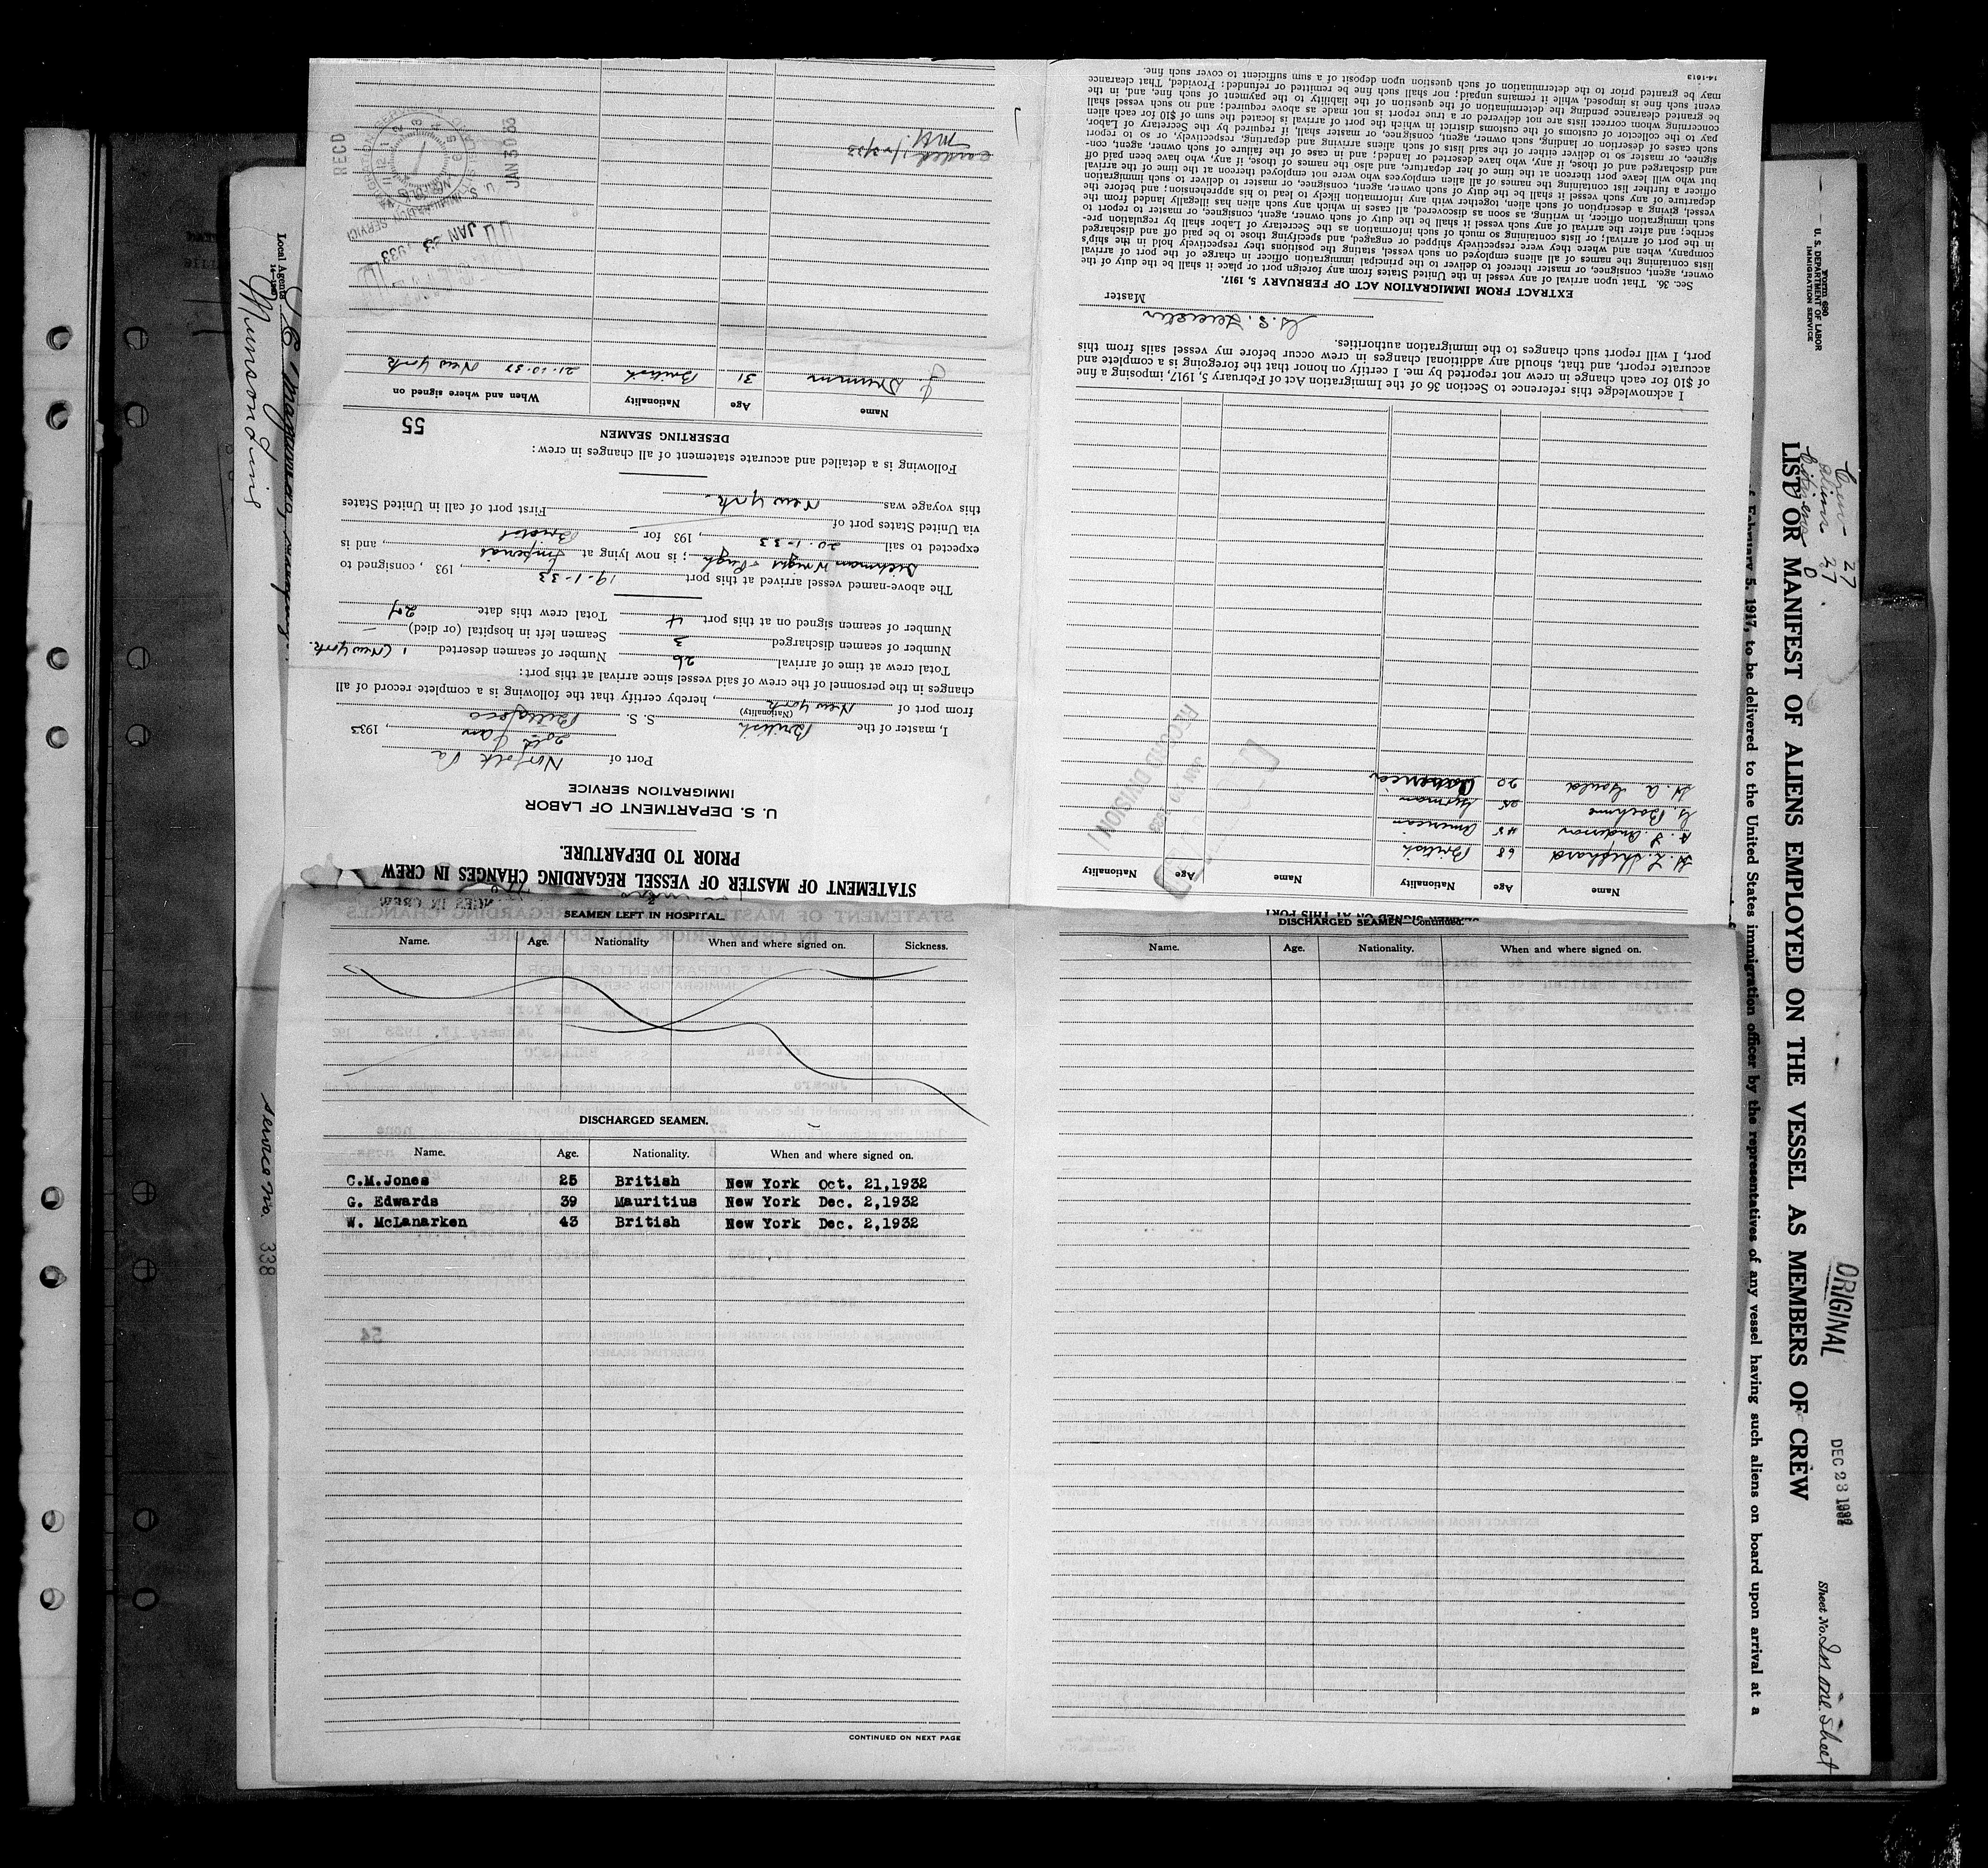 STATEMENT OF MASTER OF VESSEL REGARDING CHANGES IN CREW
PRIOR TO DEPARTURE.
U. S. DEPARTMENT OF LABOR
IMMIGRATION SERVICE
Port of Norfolk Va
20th Jan, 1933
I, master of the British S. S.
(Nationality)
from port of New York, hereby certify that the following is a complete record of all
changes in the personnel of the crew of said vessel since arrival at this port:
Total crew at time of arrival 26 Number of seamen deserted 1 (New York.
Number of seamen discharged 3 Seamen left in hospital (or died) —
Number of seamen signed on at this port 4 Total crew this date 27
The above-named vessel arrived at this port 19-1-33, 193 , consigned to
Dickman Wright & Pugh; is now lying at Imperial, and is
expected to sail 20-1-33, 193 for Bristol
via United States port of First port of call in United States
this voyage was New York
Following is a detailed and accurate statement of all changes in crew:
DESERTING SEAMEN
55
Name Age Nationality When and where signed on
31 British New York
RECD
JAN 30 33
SEAMEN SIGNED ON AT THIS PORT
Name Age Nationality Name Age Nationality
H. L. Shephard 68 British
A. J. Anderson 45 American
G. Boehme 25 German
H. A. Gould 20
RECORD DIVISION
I acknowledge this reference to Section 36 of the Immigration Act of February 5, 1917, imposing a fine
of $10 for each change in crew not reported by me. I certify on honor that the foregoing is a complete and
accurate report, and that, should any additional changes in crew occur before my vessel sails from this
port, I will report such changes to the immigration authorities.
Master
EXTRACT FROM IMMIGRATION ACT OF FEBRUARY 5, 1917.
Sec. 36. That upon arrival of any vessel in the United States from any foreign port or place it shall be the duty of the
owner, agent, consignee, or master thereof to deliver to the principal immigration officer in charge of the port of arrival
lists containing the names of all aliens employed on such vessel, stating the positions they respectively hold in the ship's
company, when and where they were respectively shipped or engaged, and specifying those to be paid off and discharged
in the port of arrival; or lists containing so much of such information as the Secretary of Labor shall by regulation pre-
scribe; and after the arrival of any such vessel it shall be the duty of such owner, agent, consignee, or master to report to
such immigration officer, in writing, as soon as discovered, all cases in which any such alien has illegally landed from the
vessel, giving a description of such alien, together with any information likely to lead to his apprehension; and before the
departure of any such vessel it shall be the duty of such owner, agent, consignee, or master to deliver to such immigration
officer a further list containing the names of all alien employees who were not employed thereon at the time of the arrival
but who will leave port thereon at the time of her departure, and also the names of those, if any, who have been paid off
and discharged and of those, if any, who have deserted or landed; and in case of the failure of such owner, agent, con-
signee, or master so to deliver either of the said lists of such aliens arriving and departing, respectively, or so to report
such cases of desertion or landing, such owner, agent, consignee, or master, shall, if required by the Secretary of Labor,
pay to the collector of customs of the customs district in which the port of arrival is located the sum of $10 for each alien
concerning whom correct lists are not delivered or a true report is not made as above required; and no such vessel shall
be granted clearance pending the determination of the question of the liability to the payment of such fine, and, in the
event such fine is imposed, while it remains unpaid; nor shall such fine be remitted or refunded: Provided, That clearance
may be granted prior to the determination of such question upon deposit of a sum sufficient to cover such fine.
14-1613
2
SEAMEN LEFT IN HOSPITAL.
Name. Age. Nationality When and where signed on. Sickness.
DISCHARGED SEAMEN.
Name. Age. Nationality. When and where signed on.
C.M.Jones 25 British New York Oct. 21,1932
G. Edwards 39 Mauritius New York Dec. 2,1932
W. McLanarken 43 British New York Dec. 2,1932
CONTINUED ON NEXT PAGE
DISCHARGED SEAMEN—Continued.
Name. Age. Nationality. When and where signed on.
Form 680
U. S. DEPARTMENT OF LABOR
IMMIGRATION SERVICE
Crew 27
Aliens 27
Citizens 0
ORIGINAL
DEC 23 1932
Sheet No. In one Sheet
LIST OR MANIFEST OF ALIENS EMPLOYED ON THE VESSEL AS MEMBERS OF CREW
f February 5, 1917, to be delivered to the United States immigration officer by the representatives of any vessel having such aliens on board upon arrival at a
Local Agents
Munson Line
Service No. 338